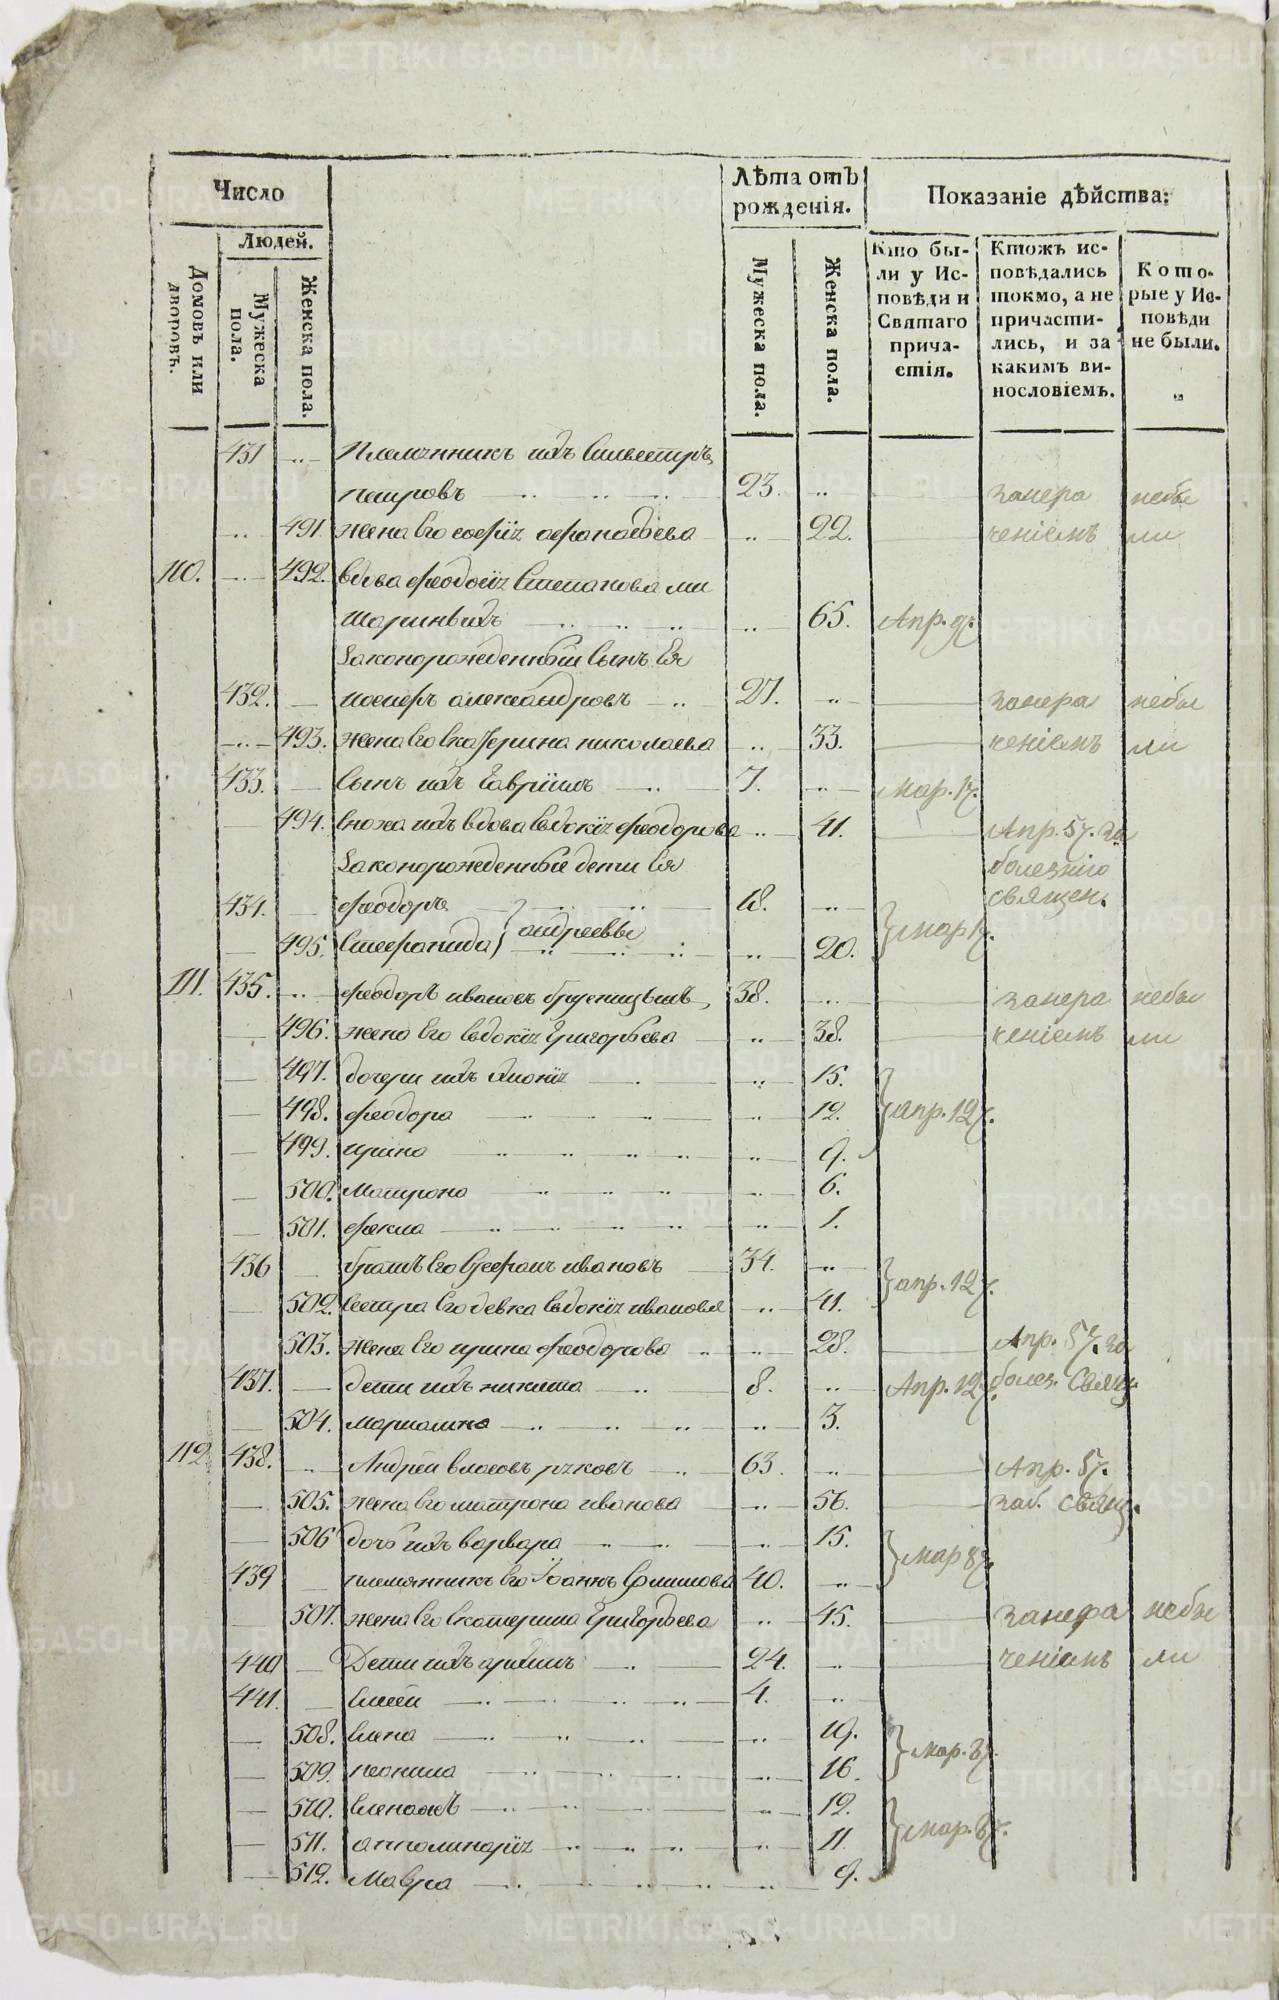 Число
Лѣта отъ рожденія.
Показаніе дѣйства:
Людей.
Домовъ или дворовъ.
Мужеска пола.
Женска пола.
Мужеска пола.
Женска пола.
Кто были у Исповѣди и Святаго причастія.
Ктожъ исповѣдались токмо, а не причастились, и за какимъ винословіемъ.
Которые у Исповѣди не были.
431 Племянникъ ихъ Силвестръ
петровъ 23. занера небы
491. жена его софїя афонасьева 22. ченіемъ ли
110. 492. вдова феодосїя Степанова ми
шариныхъ 65. Апр. 9.
Законорожденный сынъ Ея
432. иосифъ александровъ 27. занера небы
493. жена его екатерина николаева 33. ченіемъ ли
433. сынъ ихъ Гаврїилъ 7. Мар. 17.
494. сноха ихъ вдова евдокїя феодорова 41. Апр. 5. за
Законорожденные дети Ея болезнію
434. феодоръ 18. священ.
495. Стефанида андреевы 20. мар 17.
111. 435. феодоръ ивановъ 38. занера небы
496. жена Его евдокїя Григорьева 38. ченіемъ ли
497. дочери ихъ 15.
498. феодора 12. апр. 12.
499. ирина 9.
500. Матрона 6.
501. фекла 1.
436 братъ Его Ефремъ ивановъ 34.
502. сестра Его девка евдокїя иванова 41. апр. 12.
503. жена его ирина феодорова 28. Апр. 5. за
437. дети ихъ никита 8. Апр. 12. болез. Свящ.
504. мариамна 3.
112 438. Андрей власовъ 63. Апр. 5.
505. жена Его матрона иванова 56. заб. свящ.
506 дочь ихъ варвара 15.
439 племянникъ Его Іоаннъ 40. мар 8.
507. жена Его екатерина Григорьева 45. занера небы
440 Дети ихъ 24. ченіемъ ли
441. 4.
508. елена 19.
509. неонила 16. мар. 8.
510. 12.
511. апполинарїя 11. мар. 8.
512. Мавра 9.
METRIKI.GASO-URAL.RU